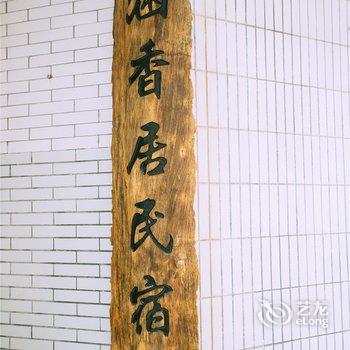 香居民宿
艺龙
eLong